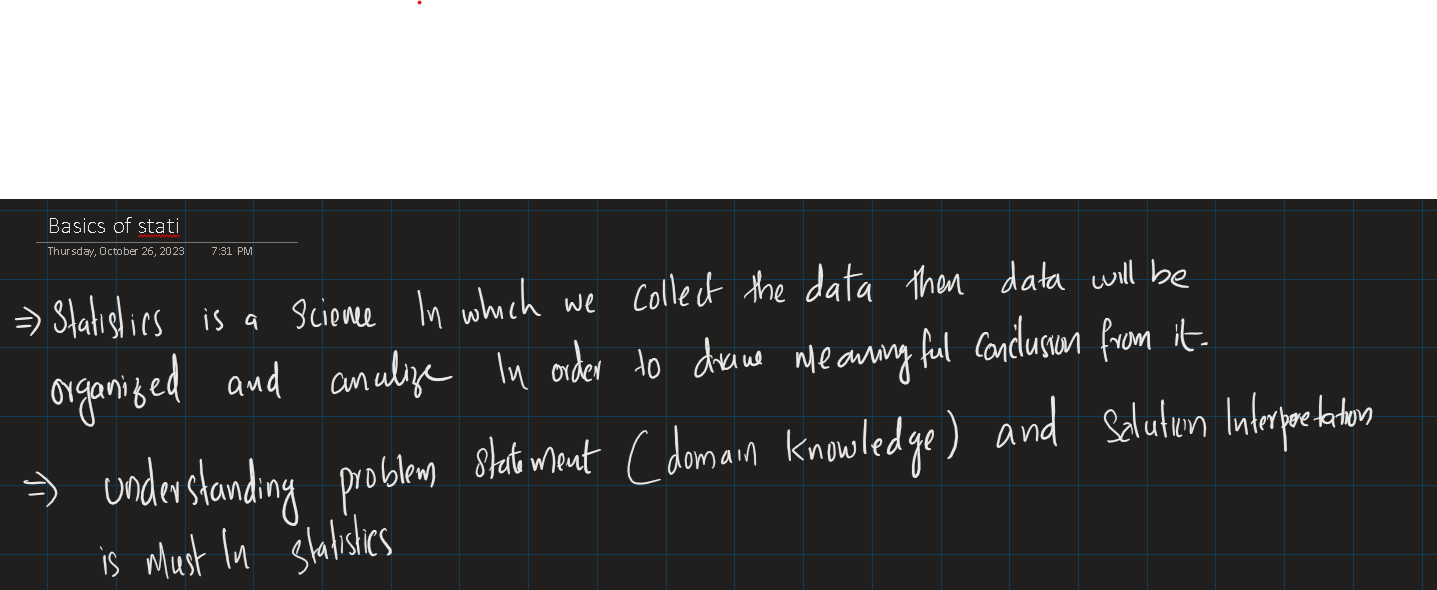 Basics of stati
Thursday, October 26, 2023 7:31 PM
⇒ Statistics is a science In which we collect the data then data will be
organized and analize In order to draw meaningful conclusion from it.
⇒ understanding problem statement (domain knowledge) and solution Interpretation
is must In statistics